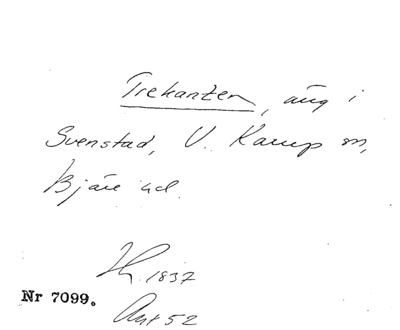 Trekanten, äng i
Svenstad, V. Karup sn,
Bjäre hd.
H. 1837
Nr 7099.
Akt 52